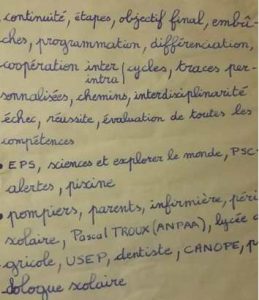 continuité, étapes, objectif final, embû-
ches, programmation, différenciation,
coopération inter/intra cycles, traces per-
sonnalisées, chemins, interdisciplinarité
échec, réussite, évaluation de toutes les
compétences
• EPS, sciences et explorer le monde, PSC
alertes, piscine
• pompiers, parents, infirmière, péri
scolaire, Pascal TROUX (ANPAA), lycée a
gricole, USEP, dentiste, CANOPE, p
dologue scolaire